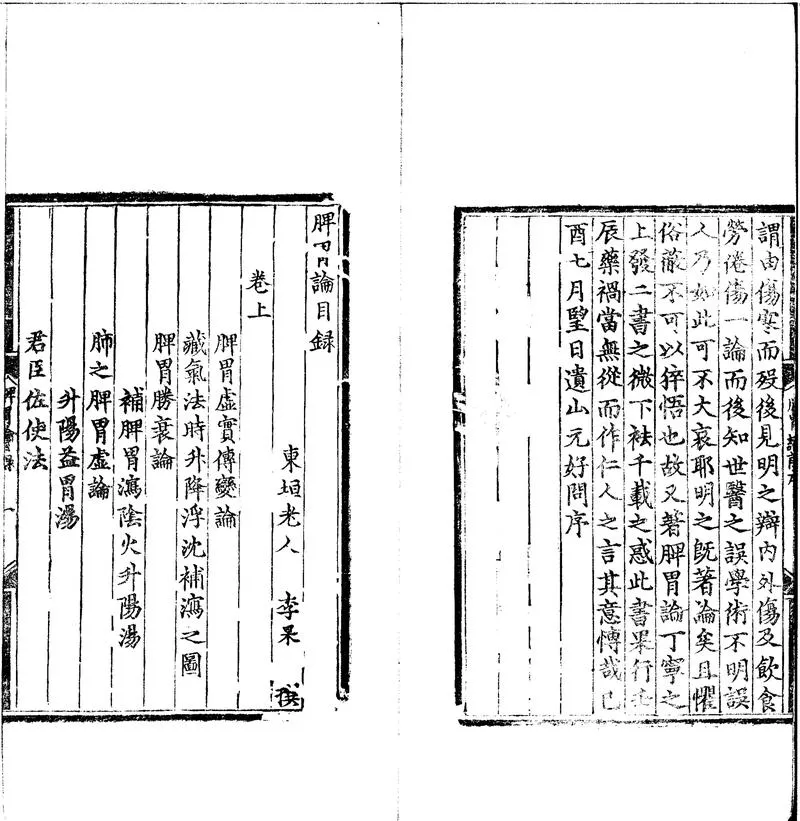 謂由傷寒而殁後見明之辯内外傷及飲食
勞倦傷一論而後知世醫之誤學術不明誤
人乃如此可不大哀耶明之既著論矣且懼
俗蔽不可以猝悟也故又著脾胃論丁寧之
上發二書之微下袪千載之惑此書果行壬
辰藥禍當無從而作仁人之言其意慱哉己
酉七月朢日遺山元好問序
脾胃論目録
東垣老人 李杲 撰
卷上
脾胃虛實傳變論
藏氣法時升降浮沈補瀉之圖
脾胃勝衰論
補脾胃瀉陰火升陽湯
肺之脾胃虛論
升陽益胃湯
君臣佐使法
脾胃論目錄 一